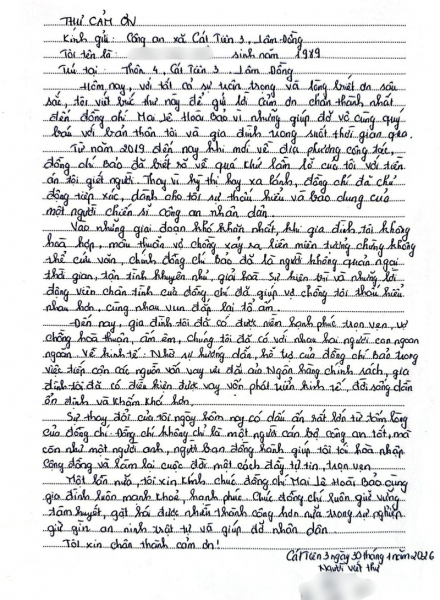 THƯ CẢM ƠN
Kính gửi: Công an xã Cát Tiên 3, Lâm Đồng
Tôi tên là: sinh năm 1989
Trú tại: Thôn 4, Cát Tiên 3, Lâm Đồng
Hôm nay, với tất cả sự trân trọng và lòng biết ơn sâu
sắc, tôi viết bức thư này để gửi lời cảm ơn chân thành nhất
đến đồng chí Mai Lê Hoài Bảo vì những giúp đỡ vô cùng quý
báu với bản thân tôi và gia đình trong suốt thời gian qua.
Từ năm 2019 đến nay khi mới về địa phương công tác,
đồng chí Bảo đã biết rõ về quá khứ lầm lỡ của tôi với tiền
án tội giết người. Thay vì kỳ thị hay xa lánh, đồng chí đã chủ
động tiếp xúc, dành cho tôi sự thấu hiểu và bao dung của
một người chiến sĩ công an nhân dân.
Vào những giai đoạn khó khăn nhất, khi gia đình tôi không
hoà hợp, mâu thuẫn vợ chồng xảy ra liên miên tưởng chừng không
thể cứu vãn, chính đồng chí Bảo đã là người không quản ngại
thời gian, tận tình khuyên nhủ, giải hoà. Sự kiên trì và những lời
động viên chân tình của đồng chí đã giúp vợ chồng tôi thấu hiểu
nhau hơn, cùng nhau vun đắp lại tổ ấm.
Đến nay, gia đình tôi đã có được niềm hạnh phúc trọn vẹn, vợ
chồng hoà thuận, ấm êm, chúng tôi đã có với nhau hai người con ngoan
ngoãn. Về kinh tế. Nhờ sự hướng dẫn, hỗ trợ của đồng chí Bảo trong
việc tiếp cận các nguồn vốn vay ưu đãi của Ngân hàng chính sách, gia
đình tôi đã có điều kiện được vay vốn phát triển kinh tế, đời sống dần
ổn định và khấm khá hơn.
Sự thay đổi của tôi ngày hôm nay có dấu ấn rất lớn từ tấm lòng
của đồng chí. Đồng chí không chỉ là một người cán bộ công an tốt, mà
còn như một người anh, người bạn đồng hành giúp tôi tái hoà nhập
cộng đồng và làm lại cuộc đời một cách đầy tự tin, trọn vẹn.
Một lần nữa, tôi xin kính chúc đồng chí Mai Lê Hoài Bảo cùng
gia đình luôn mạnh khoẻ, hạnh phúc. Chúc đồng chí luôn giữ vững
tâm huyết, gặt hái được nhiều thành công hơn nữa trong sự nghiệp
giữ gìn an ninh trật tự và giúp đỡ nhân dân.
Tôi xin chân thành cảm ơn!
Cát Tiên 3 ngày 30 tháng 1 năm 2026
Người viết thư